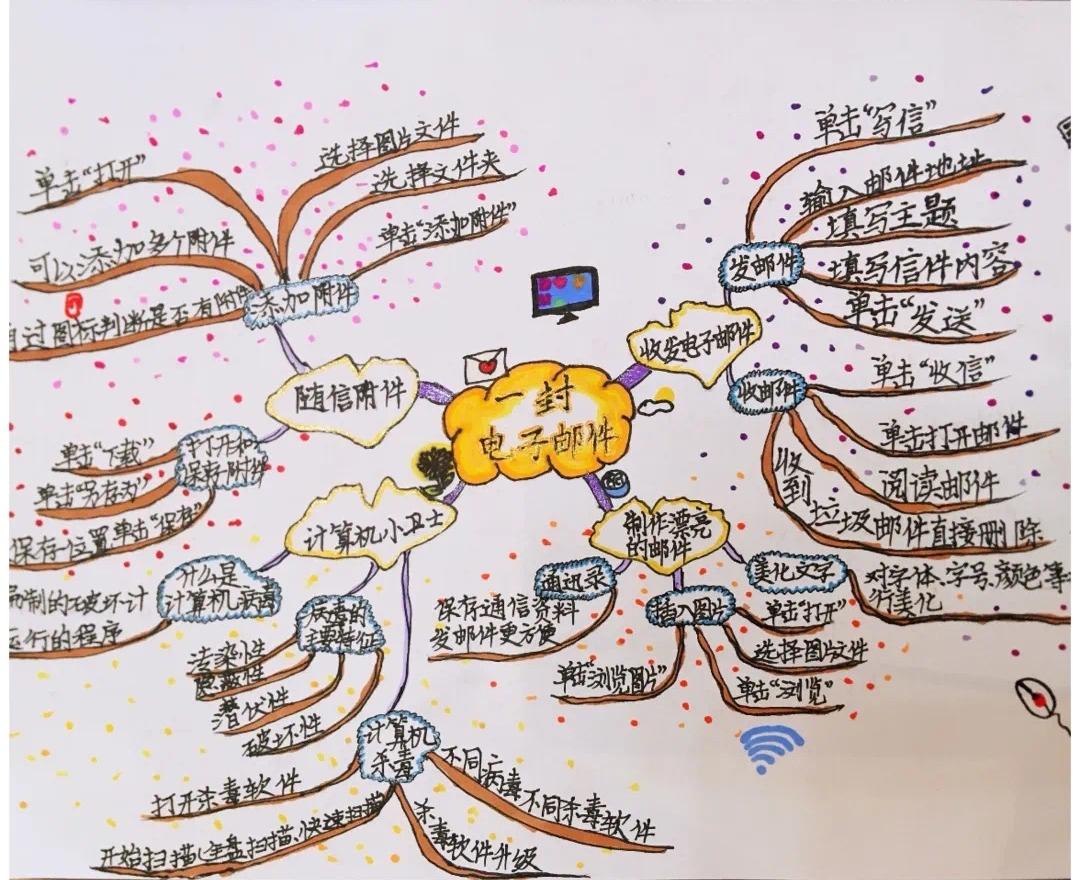 一封
电子邮件
收发电子邮件
发邮件
单击“写信”
输入邮件地址
填写主题
填写信件内容
单击“发送”
收邮件
单击“收信”
单击打开邮件
阅读邮件
收到垃圾邮件直接删除
制作漂亮
的邮件
美化文字
对字体、字号、颜色等
行美化
插入图片
单击“打开”
选择图片文件
单击“浏览”
单击“浏览图片”
通迅录
保存通信资料
发邮件更方便
随信附件
添加附件
单击“添加附件”
选择文件夹
选择图片文件
单击“打开”
可以添加多个附件
过图标判断是否有附件
打开和
保存附件
单击“下载”
单击“另存为”
保存位置单击“保存”
计算机小卫士
什么是
计算机病毒
制的破坏计
运行的程序
病毒的
主要特征
传染性
隐蔽性
潜伏性
破坏性
计算机
杀毒
打开杀毒软件
开始扫描(全盘扫描、快速扫描
杀毒软件升级
不同病毒不同杀毒软件